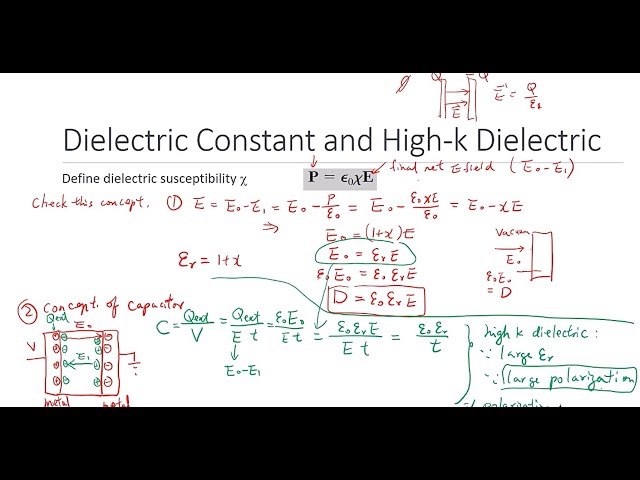 Q Q
E = Q/ε₁
E
Dielectric Constant and High-k Dielectric
Define dielectric susceptibility χ P = ϵ₀χE final net E field (E₀-E₁)
Check this concept. ① E = E₀-E₁ = E₀ - P/ε₀ = E₀ - ε₀χE/ε₀ = E₀-χE
⇒ E₀ = (1+χ)E
εr = 1+χ E₀ = εr E
ε₀E₀ = ε₀ εr E
D = ε₀ εr E
Vacuum
E₀
ε₀E₀
= D
② Concept. of Capacitor
Qext E₀
V E₁
metal metal
C = Qext/V = Qext/E t = ε₀E₀/E t = ε₀ εr E/E t = ε₀ εr/t
E₀-E₁
high k dielectric :
∵ large εr
∵ large polarization